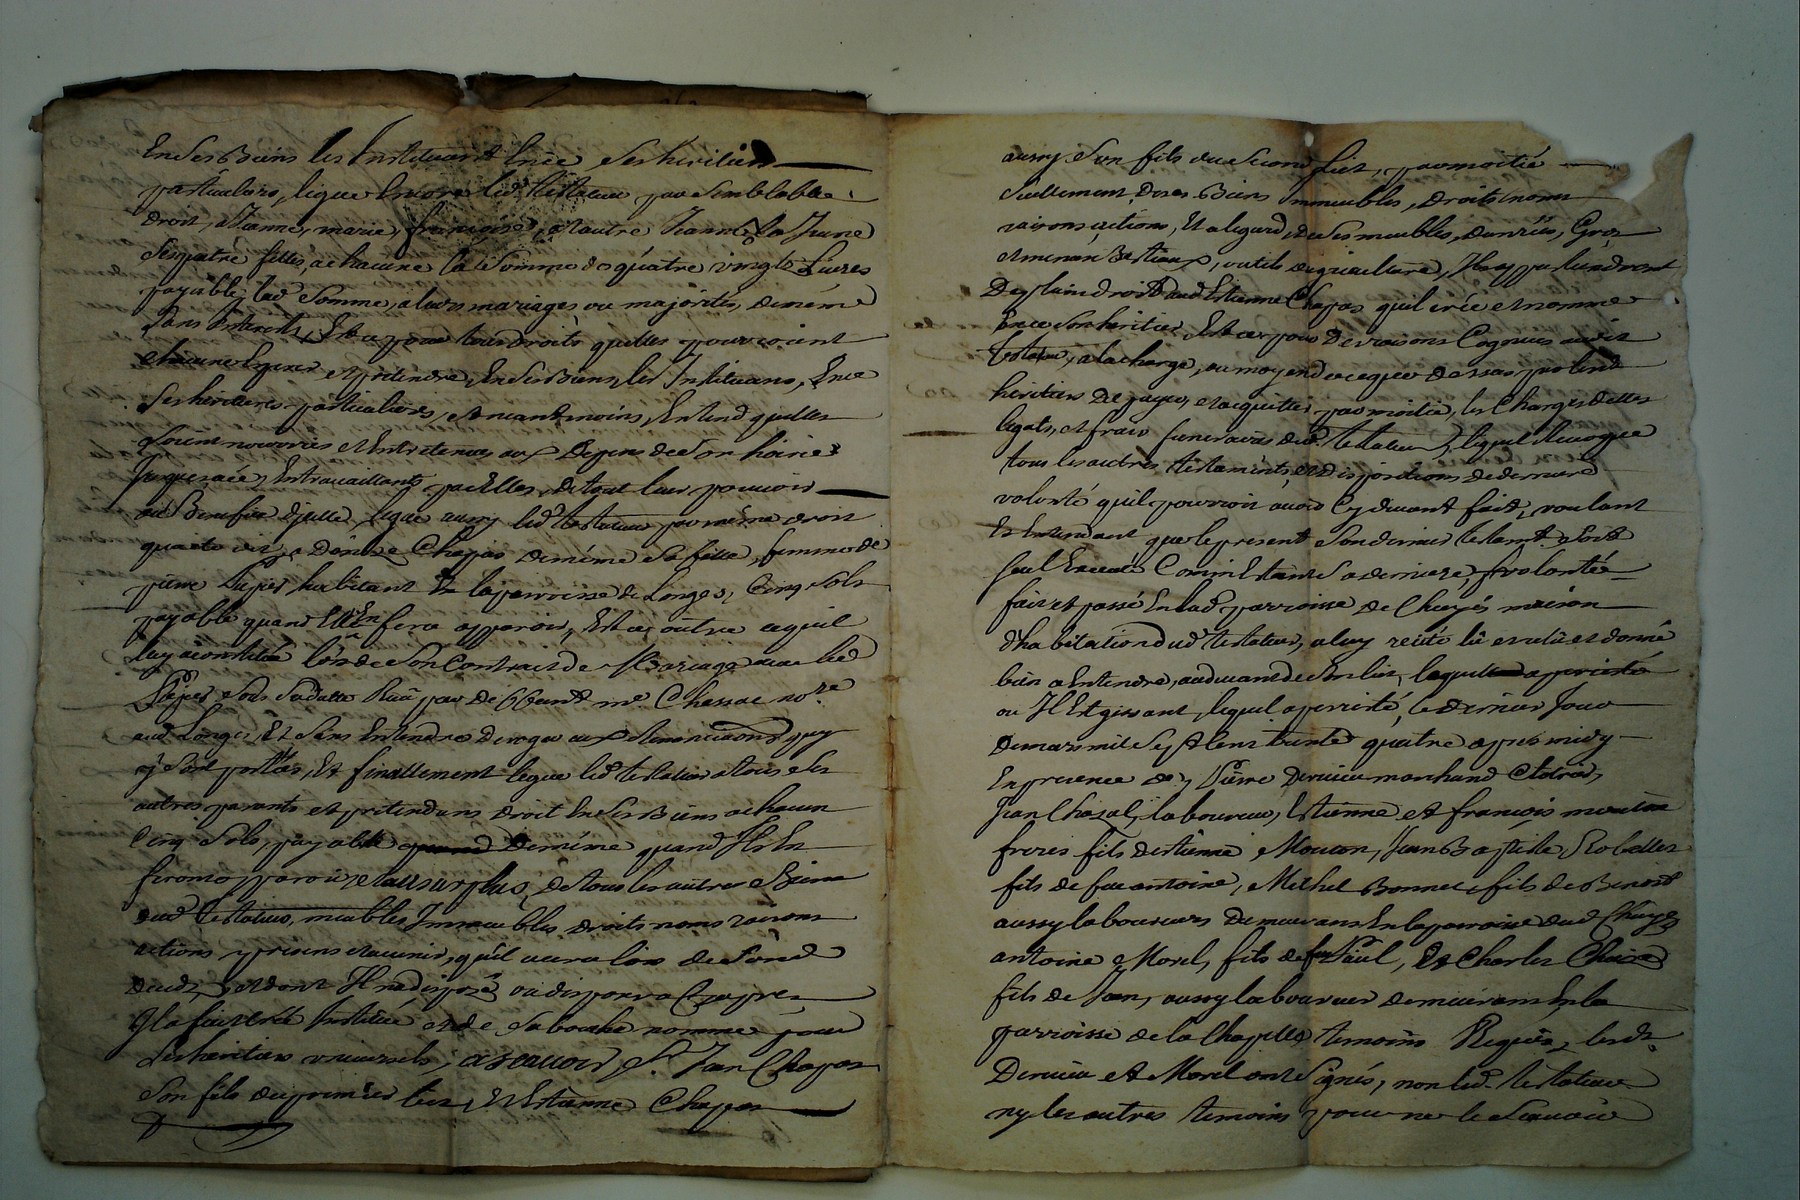 En ses Biens les Instituant En ce ses heritiers
particuliers, legue Encore led. testateur par semblable
droit, a Jeanne, marie, françoise, et autre Jeanne la Jeune
ses quatre filles, a chacune la somme de quatre vingts Livres
payable lad. somme, a leurs mariages ou majorités, de même
sans Interets, Et ce pour tous droits qu'elles pourroient
chacune Esperer et pretendre, En ses Biens, les Instituant, En ce
ses heritieres particulieres, et neantmoins, Entend qu'elles
soient nourries et Entretenues aux Depens de son hoirie
Jusques a ce, En travaillants par Elles, de tout leur pouvoir
au Benefice d'jcelle, legue aussy led. testateur par même droit
que cete dit, a Denise Chapas de même sa fille, femme de
pierre habitant En la parroisse de Longes, Cinq sols
payable quand Elle En fera apparoir, Et ce outre ce qu'il
luy a constitué lors de son Contract de Mariage avec led.
sous sa datte Receu par deffunt me. Chessac nore.
aud. Longes, Et sans Entendre Deroger aux Renonciations quy
y sont portées, Et finallement legue led. testateur a tous les
autres parants et pretendans droit En ses Biens a chacun
Cinq sols, payable de même quand Ils En
feront paroir, et au surplus, de tous les autres Biens
dud. testateur, meubles Immeubles droits noms raisons
actions, presens et avenir, qu'il aura lors de son
deceds, et dont Il n'a disposé, ou disposera Cy apres
Il a fait créé Institué et de sa bouche nommé pour
ses heritiers universels, a scavoir, Sr. Jean Chapas
son fils du premier lict, Et Estienne Chapas
aussy son fils du second lict, par moitié
seullement, de ses Biens Immeubles, Droits noms
raisons actions, Et a l'egard, de ses meubles, danrées, Gros
et menus Bestiaux, outils d'agriculture, Ils appartiendront
De plain droit aud. Estienne Chapas qu'il crée et nomme
En ce son heritier, Et ce pour De raisons Cognues aud.
testateur, a la charge, ou moyenant ce que dessus par lesd.
heritiers De payer, et acquitter par moitié, les Charges dettes
legats, et fraix funeraires dud. testateur, lequel Revoque
tous les autres testaments, et dispositions de derniere
volonté qu'il pourroit avoir Cy devant fait, voulant
Et Entendant que le present son dernier testamt. soit
seul Executé Comme Etant sa derniere volonté
fait et passé En lad. parroisse de Chuyés maison
d'habitation dud. testateur, a luy recité lû et relû et donné
bien a Entendre, au devant de son lict,
ou Il Est gissant, lequel a persisté, le dernier Jour
de mars mil sept Cent trente quatre apres midy
En presence de, pierre Dervieu marchand
Jean Chazal, laboureur, Estienne et françois mouton
freres fils d'estienne Mouton, Jean Baptiste
fils de feu antoine, Michel Bonnet, fils de Benoist
aussy laboureurs demeurans En la parroisse dud. Chuyes
antoine Morel, fils de feu Paul, Et Charles
fils de Jean, aussy laboureur demeurans En la
parroisse de la Chapelle temoins Requis, lesds.
Dervieu et Morel ont signés, non led. testateur
ny les autres temoins pour ne le scavoir